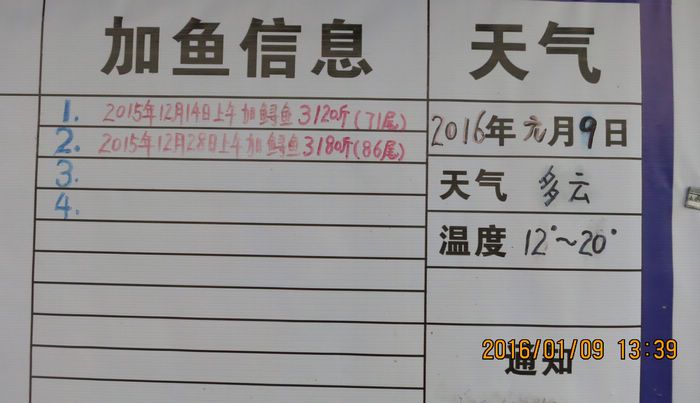 加鱼信息
1. 2015年12月14日上午加鲟鱼3120斤(71尾)
2. 2015年12月28日上午加鲟鱼3180斤(86尾)
3.
4.
天气
2016年元月9日
天气 多云
温度 12°~20°
通知
2016/01/09 13:39